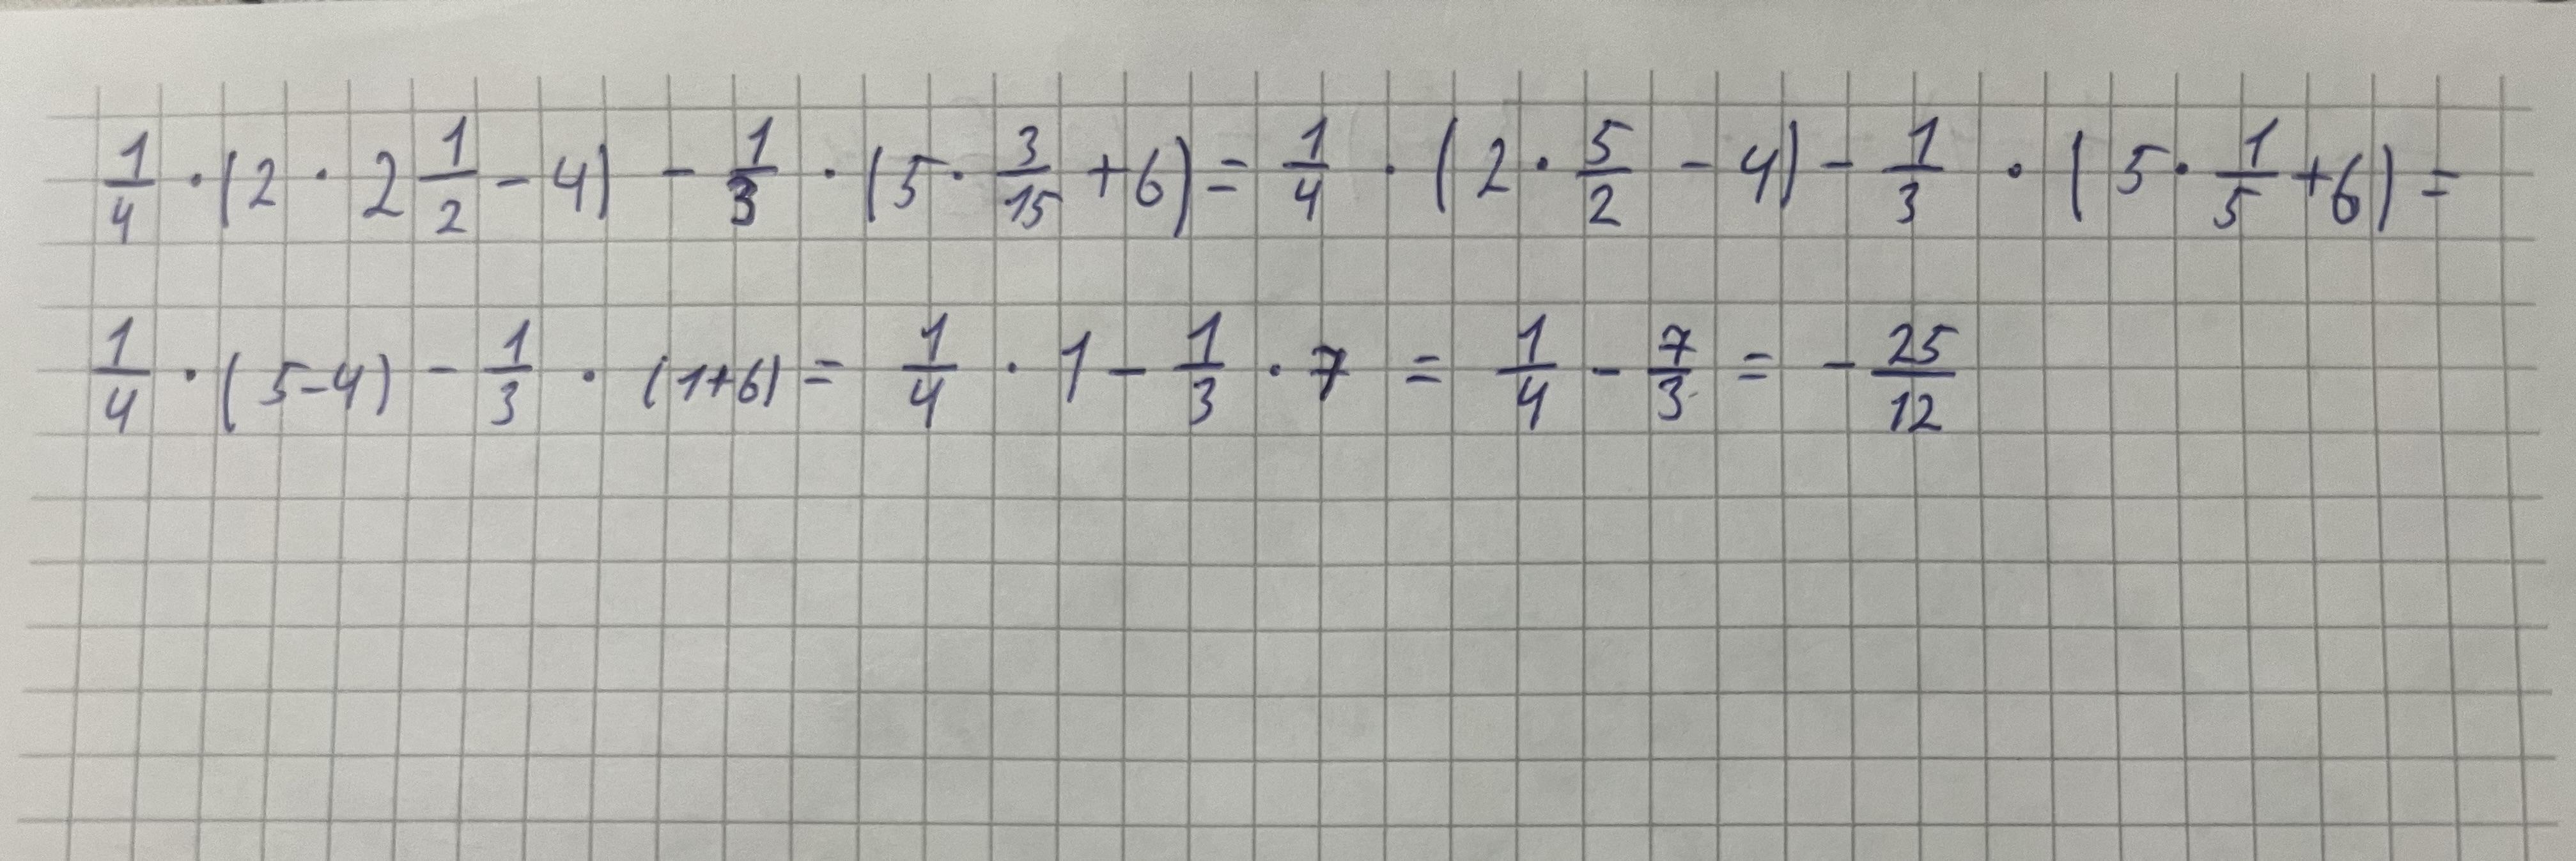 1/4 · (2 · 2 1/2 - 4) - 1/3 · (5 · 3/15 + 6) = 1/4 · (2 · 5/2 - 4) - 1/3 · (5 · 1/5 + 6) =
1/4 · (5 - 4) - 1/3 · (1 + 6) = 1/4 · 1 - 1/3 · 7 = 1/4 - 7/3 = - 25/12